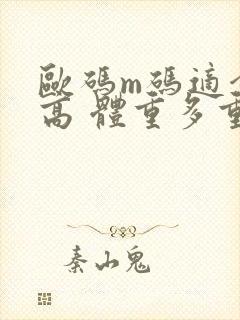 歐碼m碼適
高 體重多重
秦山鬼